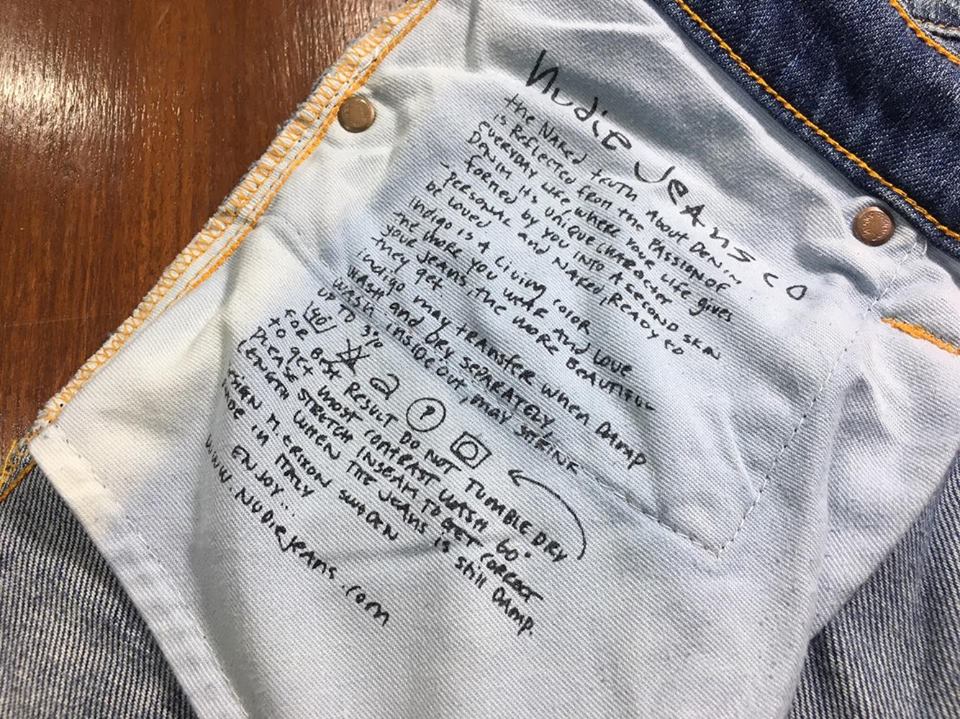 Nudie Jeans co
the NAKED truth About DENIM
is Reflected from the PASSION of
EVERYDAY LIFE where YOUR LIFE gives
DENIM it's UNIQUE CHARACTER
- formed by you INTO A SECOND SKIN
PERSONAL and NAKED, READY to
BE LOVED
Indigo is A LIVING COLOR
the more you WEAR AND LOVE
YOUR JEANS, the MORE BEAUTIFUL
they get.
Indigo may transfer when DAMP
WASH and DRY SEPARATELY
WASH INSIDE OUT, may SHRINK
UP TO 3%
40 P
for BEST RESULT DO NOT TUMBLE DRY
to get most CONTRAST WASH 60°
PLEASE STRETCH INSEAM TO GET CORRECT
LENGTH WHEN THE JEANS is still DAMP.
M ERIXON SWEDEN
IN ITALY
ENJOY...
WWW.NUDIEJEANS.com